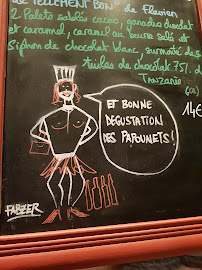 LE TELLEMENT BON" de Flavien
2 Palets sablés cacao, ganache chocolat
et caramel, caramel au beurre salé et
siphon de chocolat blanc, surmonté de 5
tuiles de chocolat 75% de
TANZANIE
14€
ET BONNE
DÉGUSTATION
DES PAPOUNETS!
FABZER